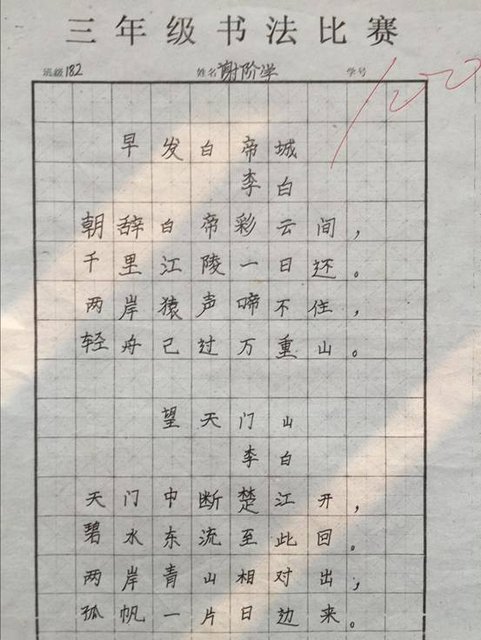 三年级书法比赛
班级 182 姓名 谢阶学 学号
100
早发白帝城
李白
朝辞白帝彩云间，
千里江陵一日还。
两岸猿声啼不住，
轻舟已过万重山。
望天门山
李白
天门中断楚江开，
碧水东流至此回。
两岸青山相对出，
孤帆一片日边来。